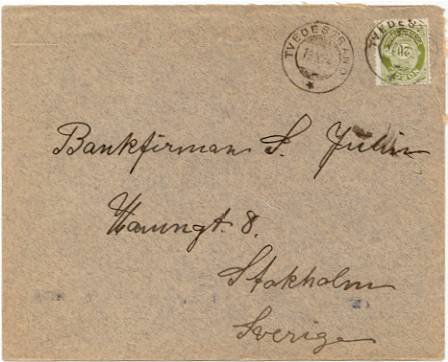 TVEDESTRAND
TVEDEST
20
Bankfirman S. Julin
Hamngt. 8.
Stokholm
Sverige